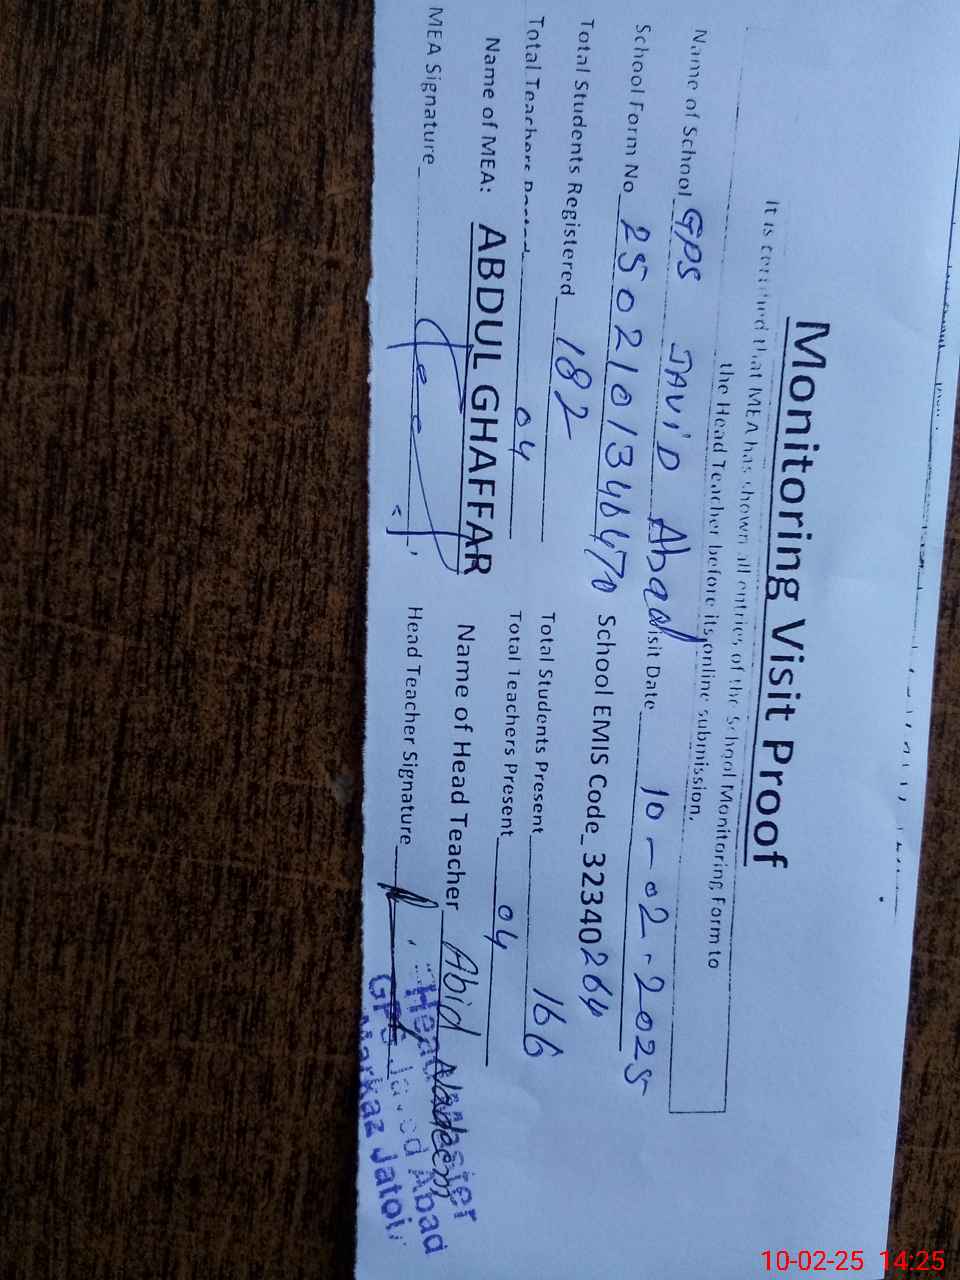 Monitoring Visit Proof
It is certified that MEA has shown all entries of the School Monitoring Form to
the Head Teacher before its online submission.
Name of School GPS JAVID Abad Visit Date 10-02-2025
School Form No 2502101346470 School EMIS Code 32340264
Total Students Registered 182 Total Students Present 166
Total Teachers Posted 04 Total Teachers Present 04
Name of MEA: ABDUL GHAFFAR Name of Head Teacher Abid Nadeem
MEA Signature Head Teacher Signature
Head Master
GPS Javed Abad
Markaz Jatoi
10-02-25 14:25